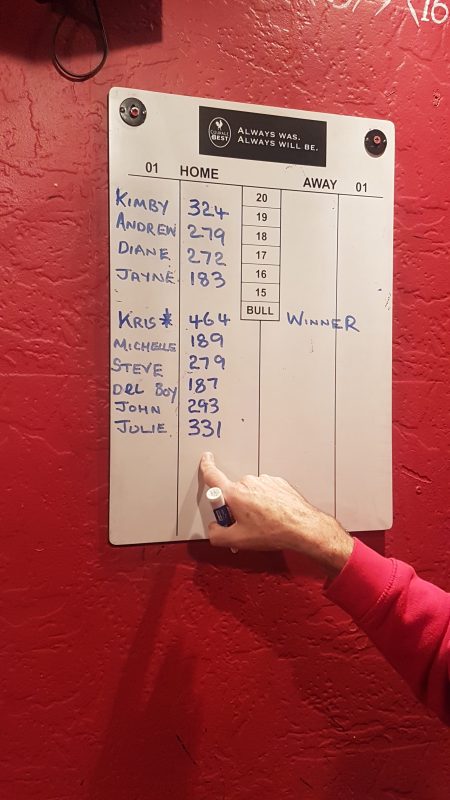 (16
COURAGE
BEST
ALWAYS WAS.
ALWAYS WILL BE.
01 HOME AWAY 01
KIMBY 324 20
ANDREW 279 19
18
DIANE 272 17
JAYNE 183 16
15
KRIS* 464 BULL WINNER
MICHELLE 189
STEVE 279
DEL BOY 187
JOHN 293
JULIE 331